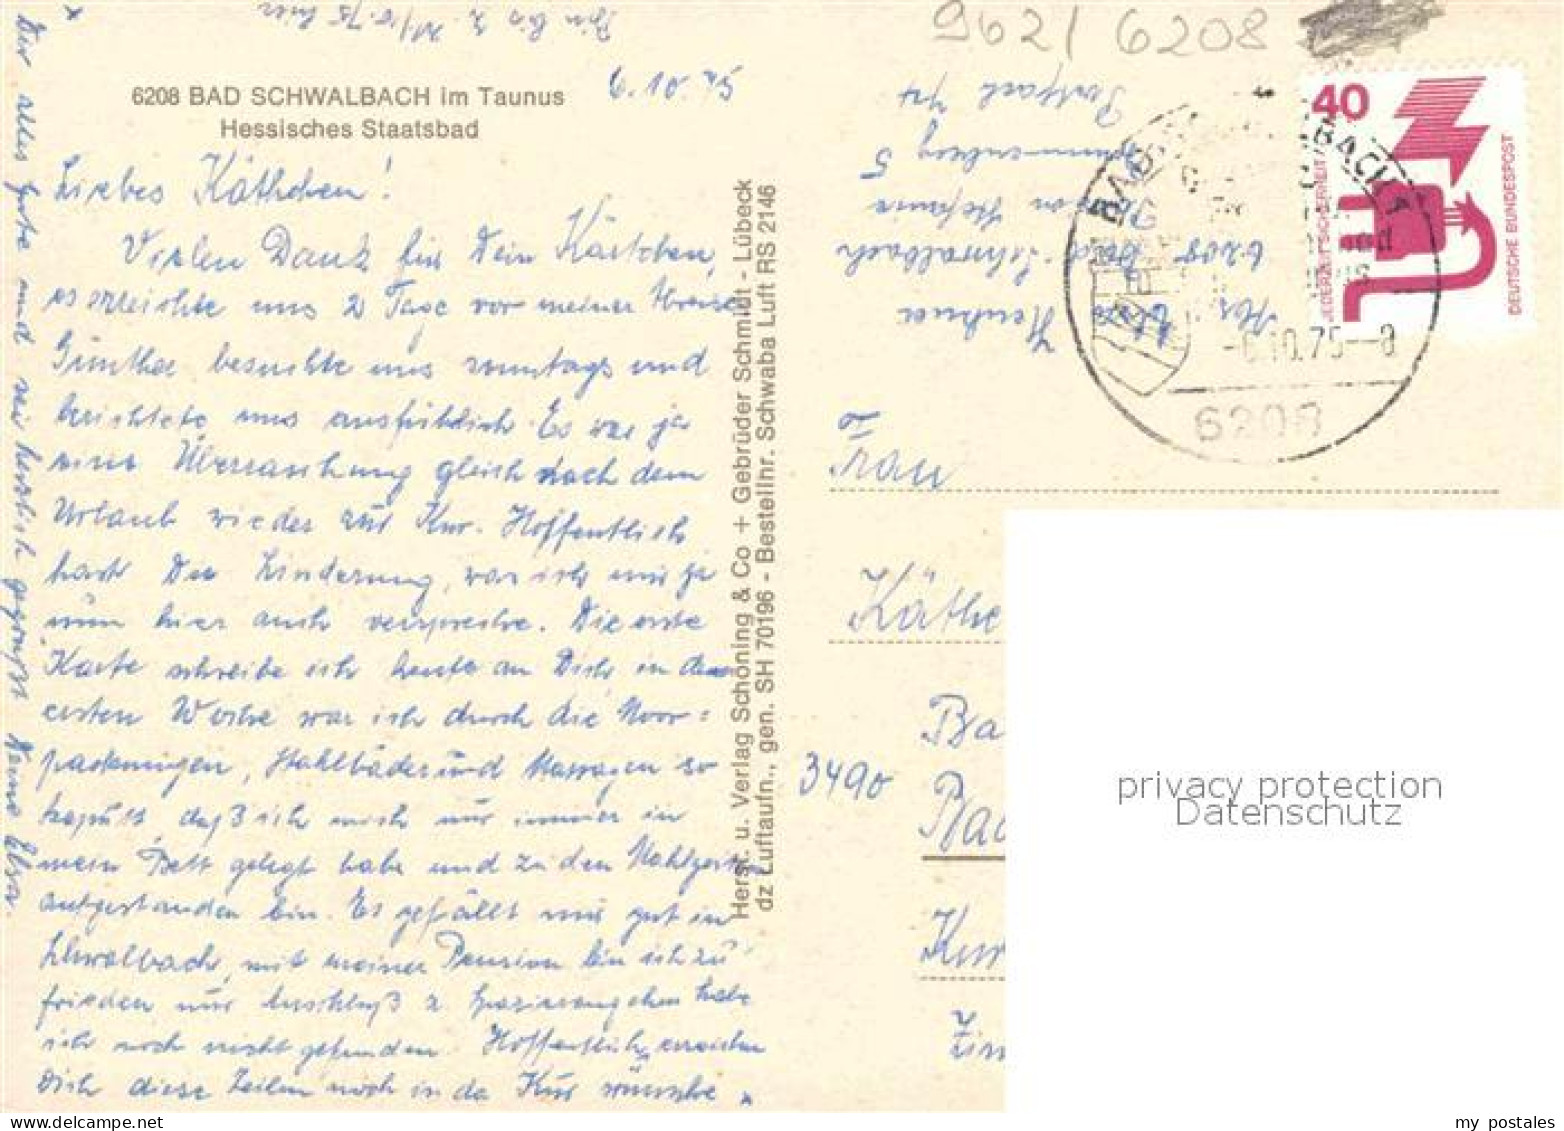 9621 6208
bin bis z. 21/10.75 hier
6208 BAD SCHWALBACH im Taunus
Hessisches Staatsbad
6.10.75
Liebes Käthchen!
Vielen Dank für Dein Kärtchen,
es erreichte uns 2 Tage vor meiner Abreise
Günther besuchte uns sonntags und
berichtete uns ausführlich. Es war ja
eine Überraschung gleich nach dem
Urlaub wieder zur Kur. Hoffentlich
hast Du Linderung, was ich mir ja
nun hier auch verspreche. Die erste
Karte schreibe ich heute an Dich in den
ersten Woche war ich durch die Moor=
packungen, Stahlbäder und Massagen so
kaputt, daß ich mich nur immer in
mein Bett gelegt habe und zu den Mahlzeiten
aufgestanden bin. Es gefällt mir gut in
Schwalbach, mit meiner Pension bin ich zu
frieden nur Anschluß z Spazierengehen habe
ich noch nicht gefunden. Hoffentlich erreichen
Dich diese Zeilen noch in der Kur wünsche
Dir alles Gute und sei herzlich gegrüßt Deine Elsa.
Herst. u. Verlag Schöning & Co + Gebrüder Schmidt - Lübeck
dz Luftaufn., gen. SH 70196 - Bestellnr. Schwaba Luft RS 2146
6208 Bad Schwalbach
Pension Stefanie
5
Postfach
40
JEDERZEIT SICHERHEIT
DEUTSCHE BUNDESPOST
BAD SCHWALBACH 1
-6.10.75--8
6208
Frau
Käthe
Ba
3490
Bad
Kur
Zim
privacy protection
Datenschutz
my postales